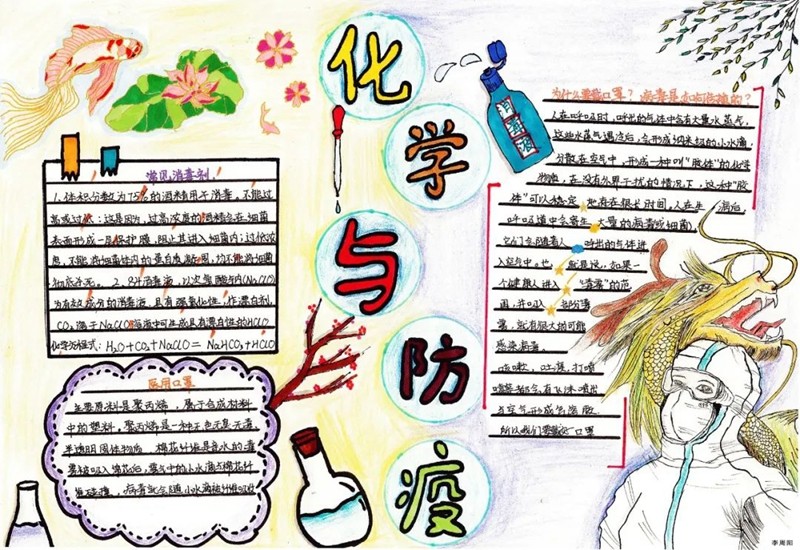 化
学
与
防
疫
常见消毒剂
1.体积分数为75%的酒精用于消毒,不能过
高或过低:这是因为,过高浓度的酒精会在细菌
表面形成一层保护膜,阻止其进入细菌内;过低浓
度,不能将细菌体内的蛋白质凝固,均不能将细菌
彻底杀死。2.84消毒液,以次氯酸钠(NaClO)
为有效成分的消毒液,具有强氧化性,作漂白剂,
CO₂溶于NaClO溶液中可生成具有漂白性的HClO
化学方程式:H₂O+CO₂+NaClO=NaHCO₃+HClO
医用口罩
主要原料是聚丙烯,属于合成材料
中的塑料。聚丙烯是一种无色无臭无毒
半透明固体物质
雾被吸入棉花后,雾气中的小水滴与棉花纤
维碰撞,病毒就会随小水滴被纤维吸附
消毒液
为什么要戴口罩?病毒是如何传播的?
人在呼吸时,呼出的气体中含有大量水蒸气,
这些水蒸气遇冷后,会形成纳米级的小水滴,
分散在空气中,形成一种叫“胶体”的化学
物质,在没有外界干扰的情况下,这种“胶
体”可以稳定地存在很长时间,人在生病后,
呼吸道中会寄生大量的病毒或细菌,
它们会随着人呼出的气体进
入空气中。也就是说,如果一
个健康人进入“毒雾”的范
围,并吸入部分毒
雾,就有很大的可能
感染病毒。
咳嗽、吐痰、打喷
嚏等都会有飞沫喷出
与空气形成气溶胶
所以我们要戴好口罩
李周阳